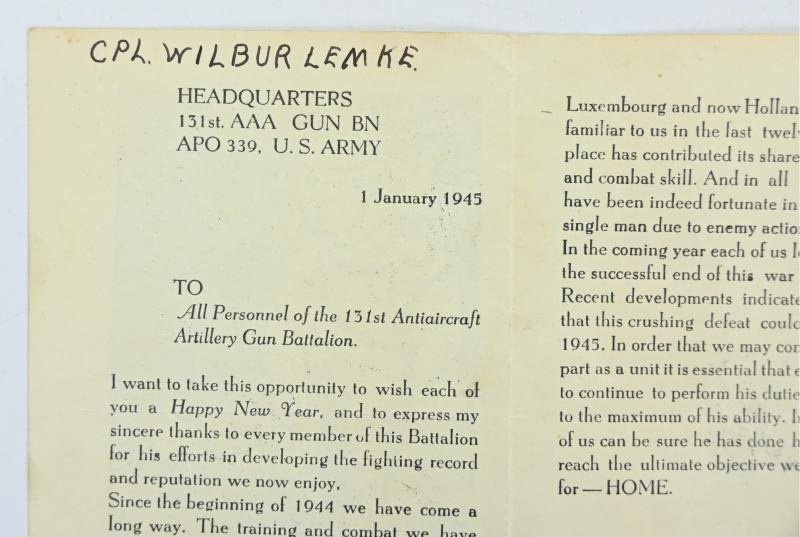 CPL. WILBUR LEMKE.
HEADQUARTERS
131st. AAA GUN BN
APO 339, U. S. ARMY
1 January 1945
TO
All Personnel of the 131st Antiaircraft
Artillery Gun Battalion.
I want to take this opportunity to wish each of
you a Happy New Year, and to express my
sincere thanks to every member of this Battalion
for his efforts in developing the fighting record
and reputation we now enjoy.
Since the beginning of 1944 we have come a
long way. The training and combat we have
Luxembourg and now Hollan
familiar to us in the last
place has contributed its share
and combat skill. And in all
have been indeed fortunate in
single man due to enemy actio
In the coming year each of us
the successful end of this war
Recent developments indicate
that this crushing defeat
1945. In order that we may
part as a unit it is essential that
to continue to perform his
to the maximum of his ability.
of us can be sure he has done
reach the ultimate objective
for — HOME.